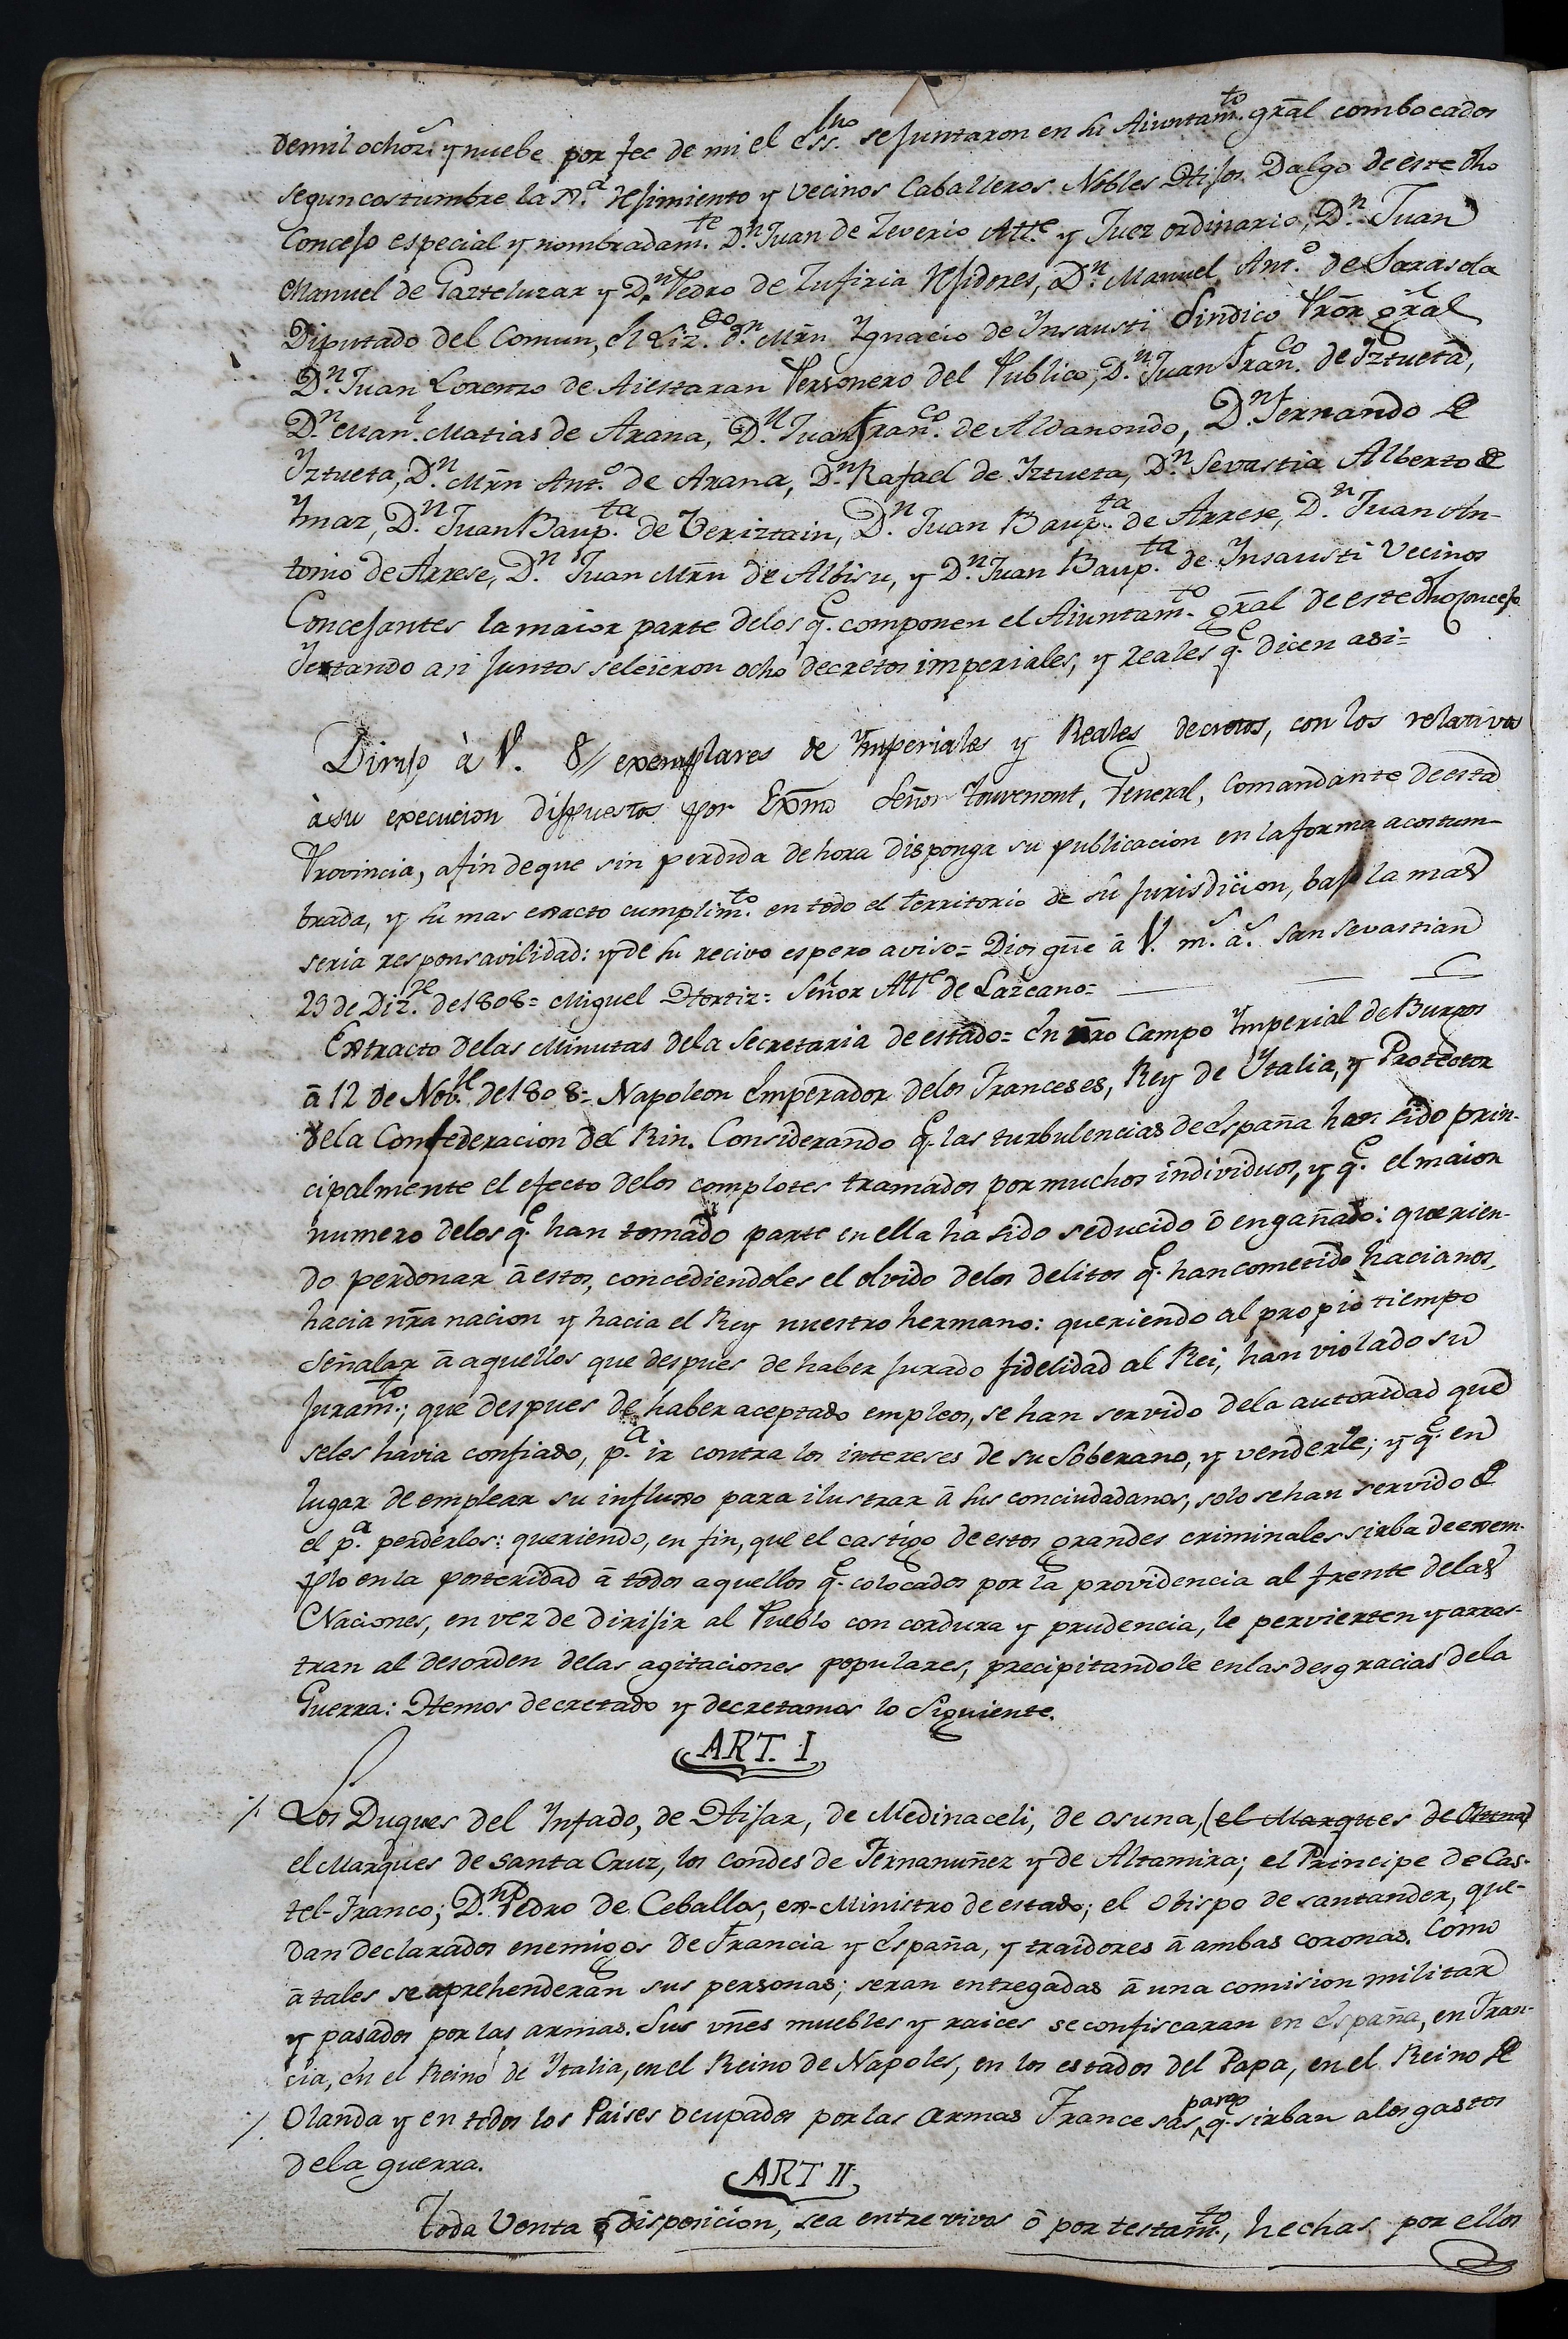 de mil ochoz.s y nuebe por fee de mi el ess.no se juntaron en su Aiuntam.to gral combocados
segun costumbre la N.a Rejimiento y vecinos Caballeros Nobles Hijos Dalgo de este dho
Concejo especial y nombradam.te D.n Juan de Zeverio Alt.e y Juez ordinario, D.n Juan
Manuel de Gazteluzar y D.n Pedro de Zufiria Rejidores, D.n Manuel Ant.o de Sarasola
Diputado del Comun, el Liz.do d.n Mrn Ygnacio de Ynsausti Sindico Pror gral
D.n Juan Lorenzo de Aiestaran Personero del Publico, D.n Juan Fran.co de Yztueta,
D.n Man.l Matias de Arana, D.n Juan Fran.co de Aldanondo, D.n Fernando de
Yztueta, D.n Mrn Ant.o de Arana, D.n Rafael de Yztueta, D.n Sevastia Alberto de
Ymaz, D.n Juan Baup.ta de Beriztain, D.n Juan Baup.ta de Arrese, D.n Juan An-
tonio de Arrese, D.n Juan Mrn de Albisu, y D.n Juan Baup.ta de Ynsausti Vecinos
Concejantes la maior parte de los q.e componen el Aiuntam.to gral de este dho concejo
Yestando asi juntos se leieron ocho decretos imperiales, y reales q.e dicen asi=
Dirijo à V. 8// exemplares de Ymperiales y Reales decretos, con los relativos
à su execucion dispuestos por Exmo Señor Touvenont, General, Comandante de esta
Provincia, afin de que sin perdida de hora disponga su publicacion en la forma acostum-
brada, y su mas exacto cumplim.to en todo el territorio de su Jurisdicion, bajo la mas
seria responsavilidad: y de su recivo espero aviso= Dios gue à V. m.s a.s San Sevastian
29 de Diz.re de 1808= Miguel Hortiz= Señor Alt.e de Lazcano=
Extracto de las Minutas de la Secretaria de estado= En nro Campo Ymperial de Burgos
à 12 de Nob.re de 1808= Napoleon Emperador de los Franceses, Rey de Ytalia, y Protector
de la Confederacion del Rin. Considerando q.e las turbulencias de España han sido prin-
cipalmente el efecto de los complotes tramados por muchos individuos, y q.e el maior
numero de los q.e han tomado parte en ella ha sido seducido ò engañado: querien-
do perdonar à estos, concediendoles el olvido de los delitos q.e han cometido hacia nos,
hacia nra nacion y hacia el Rey nuestro hermano: queriendo al propio tiempo
Señalar à aquellos que despues de haber jurado fidelidad al Rei, han violado su
juram.to; que despues de haber aceptado empleos, se han servido de la autoridad que
seles havia confiado, p.a ir contra los intereses de su Soberano, y venderle; y q.e en
lugar de emplear su influxo para ilustrar à sus conciudadanos, solo se han servido de
el p.a perderlos: queriendo, en fin, que el castigo de estos grandes criminales sirba de exem-
plo en la posteridad à todos aquellos q.e colocados por la providencia al frente de las
Naciones, en vez de dirijir al Pueblo con cordura y prudencia, le pervierten y arras-
tran al desorden de las agitaciones populares, precipitandole en las desgracias de la
Guerra: Hemos decretado y decretamos lo Siguiente.
ART. I
Los Duques del Ynfado, de Hijar, de Medinaceli, de Osuna, (el Marques de
el Marques de Santa Cruz, los Condes de Fernanuñez y de Altamira; el Principe de Cas-
tel-Franco; D.n Pedro de Ceballos, ex-Ministro de estado; el Obispo de Santander, que-
dan declarados enemigos de Francia y España, y traidores à ambas coronas. Como
à tales se aprehenderan sus personas; seran entregadas à una comision militar
y pasados por las armas. Sus vnes muebles y raices se confiscaran en España, en Fran-
cia, en el Reino de Ytalia, en el Reino de Napoles, en los estados del Papa, en el Reino de
Olanda y en todos los Paises ocupados por las armas Francesas, para q.e sirban a los gastos
de la guerra.
ART II
Toda Venta ò disposicion, sea entre vivos ò por testam.to, hechas por ellos